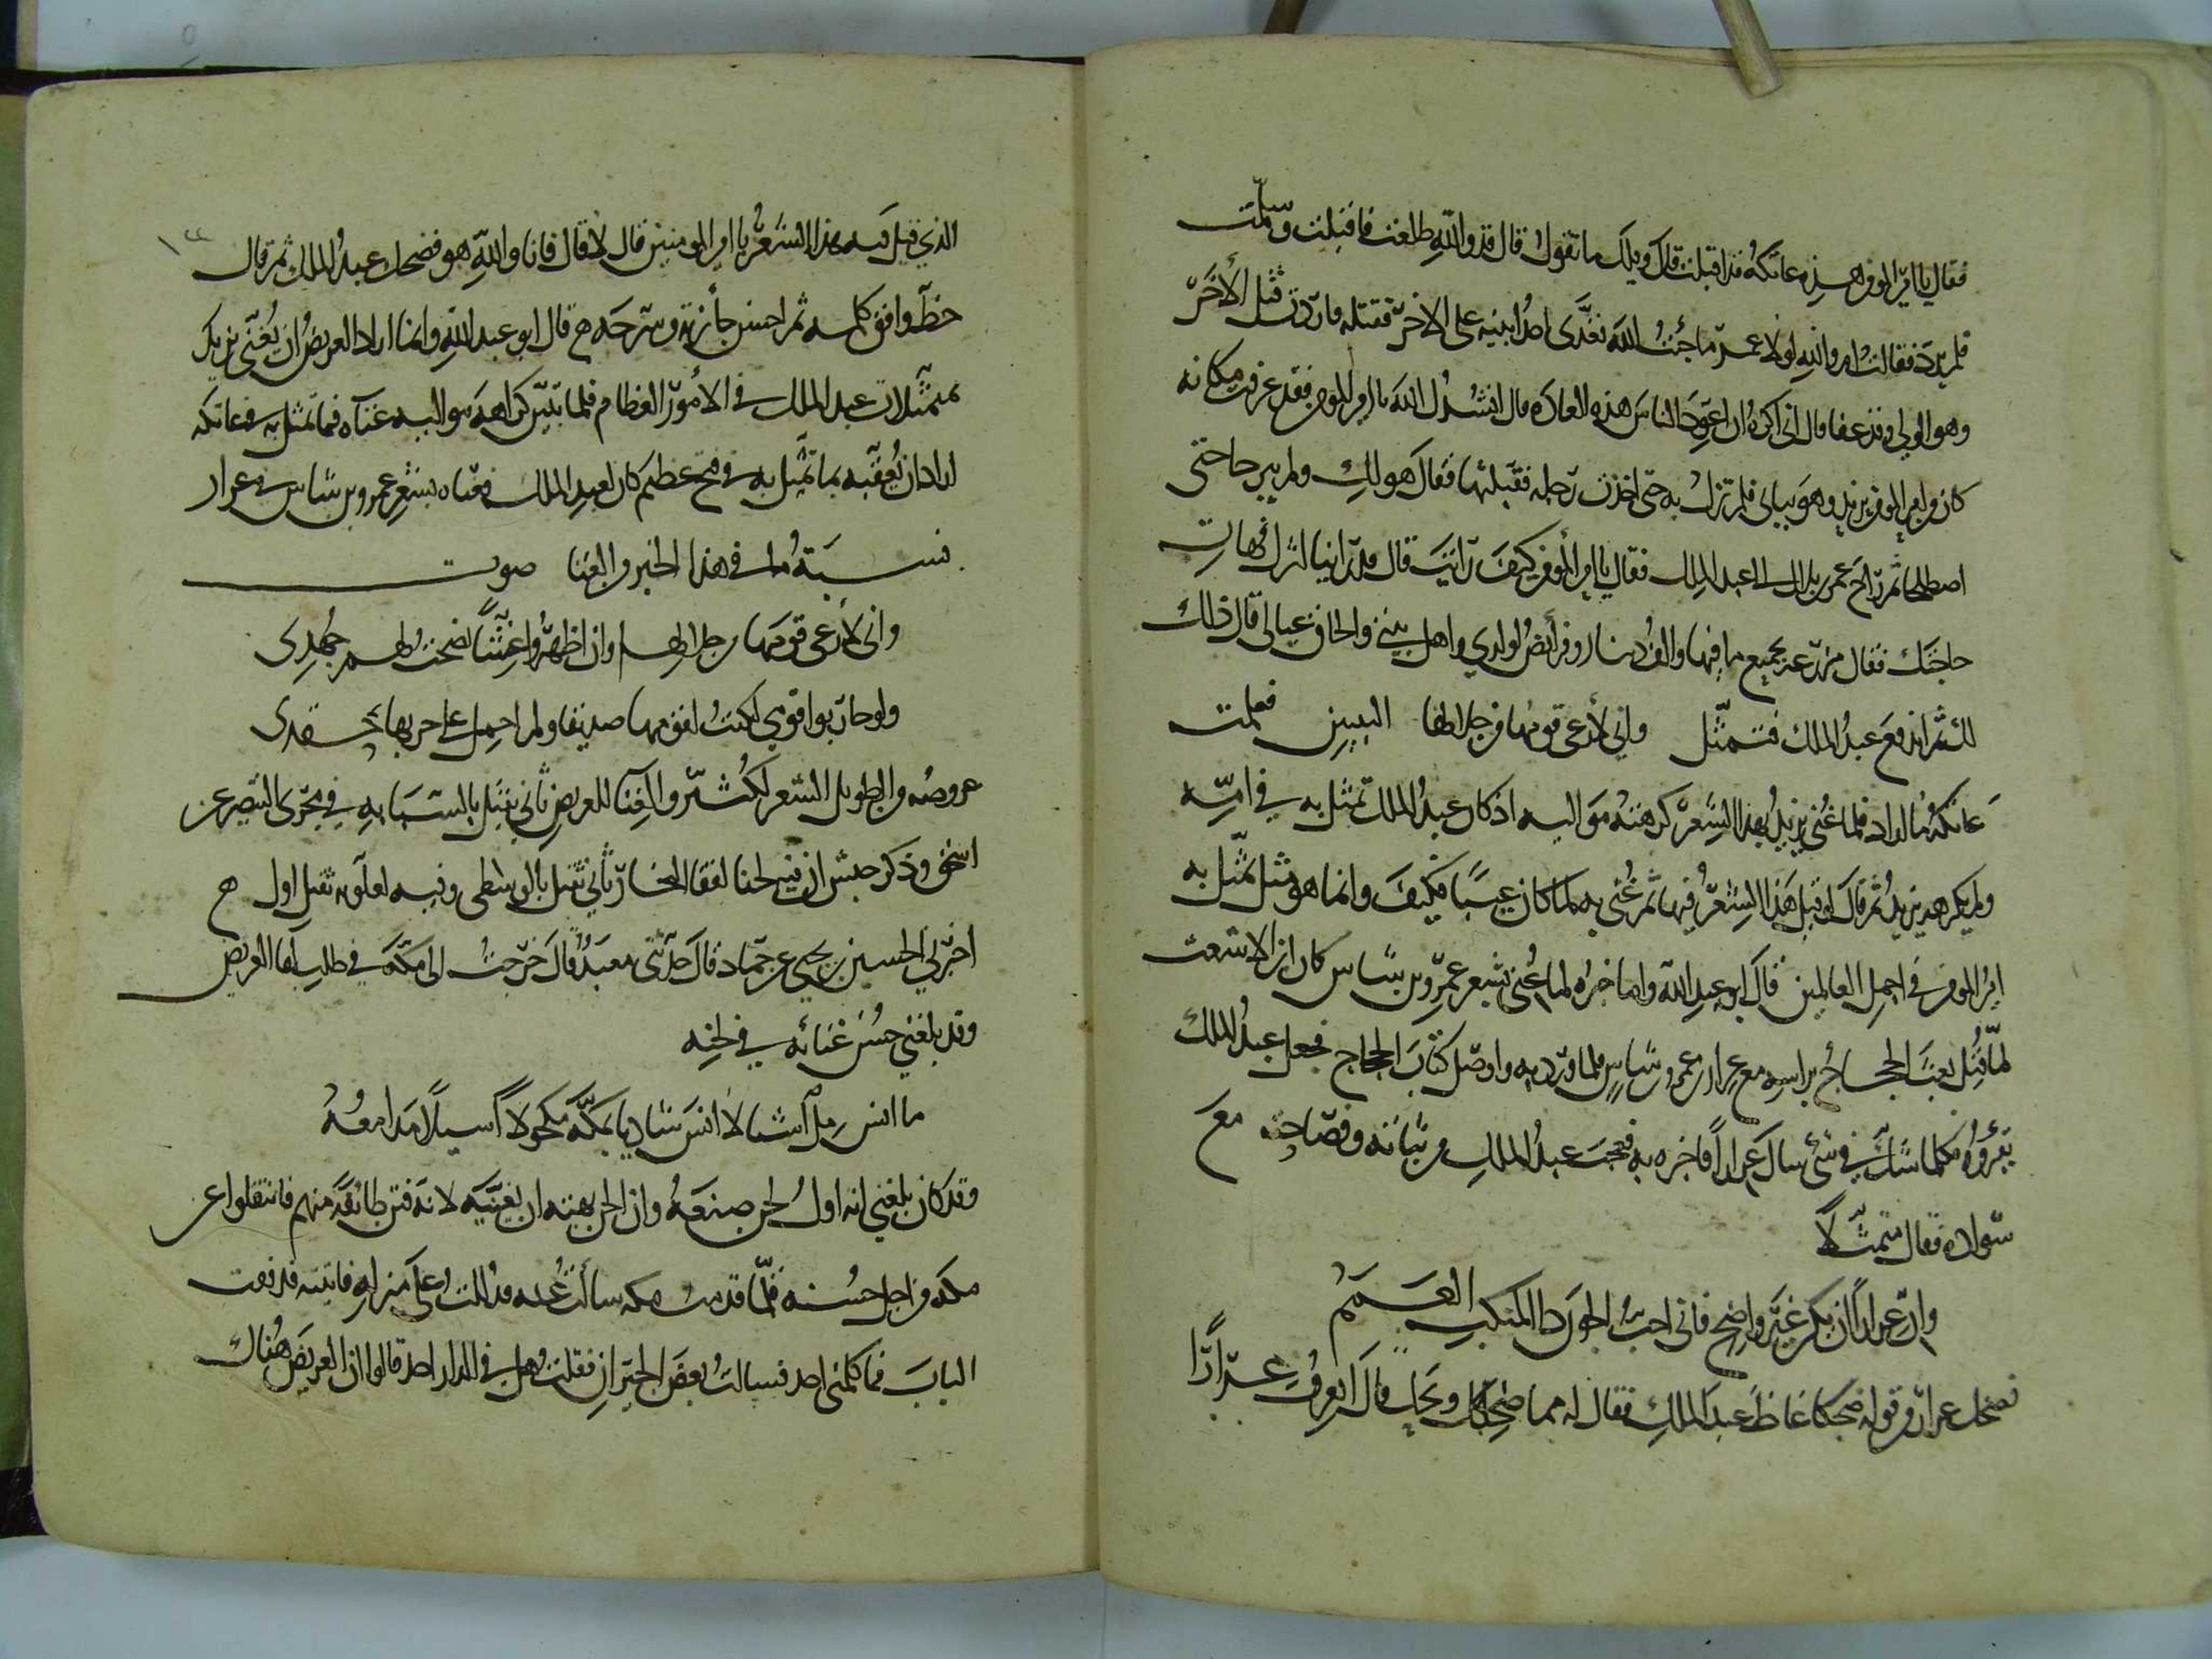 فقال يا امير المومنين هذه عاتكة قد اقبلت قال ويلك ما تقول قال قد والله طلعت فاقبلت وسلمت
فلم يرد فقالت اما والله لولا عمر ما جئت اليك تعدى احد ابنيه على الاخر فقتله فاردت قتل الاخر
وهو الولي وقد عفا قال اني اكره ان اعود الناس هذه العادة قال انشدك الله يا امير المومنين فقد عرفت مكانه
كان من امير المومنين يزيد وهو ببابي فلم تزل به حتى اخذت رجله فقبلتها فقال هو لك ولم يبرحا حتى
اصطلحا ثم راح عمر بن بلال الى عبد الملك فقال يا امير المومنين كيف رايت قال قد راينا اثرك فهات
حاجتك فقال مزرعة بجميع ما فيها والف دينار وفرائض لولدي واهل بيتي والحاق عيالي قال ذلك
لك ثم اندفع عبد الملك فتمثل واني لأرعى قومها من جلالها البيتين فعلمت
عاتكة ما اراد فلما غني يزيد بهذا الشعر كرهته مواليه اذ كان عبد الملك تمثل به في امه
ولم يكرهه يزيد ثم قال لو قيل هذا الشعر فيها ثم غني به لما كان عيبا فكيف وانما هو مثل تمثل به
امير المومنين في اجمل العالمين قال ابو عبد الله واما خبره لما غني بشعر عمرو بن شاس كان ابن الاشعث
لما قتل بعث الحجاج براسه مع عرار بن عمرو بن شاس فلما ورد به واوصل كتاب الحجاج فجعل عبد الملك
يقروه فكلما شك في شي سال عرارا فاخبره به فعجب عبد الملك من بيانه وفصاحته مع
سواده فقال متمثلا
وان عرارا ان يكن غير واضح فاني احب الجون ذا المنكب العمم
فضحك عرار من قوله ضحكا غاظ عبد الملك فقال له مما ضحكك ويحك قال اتعرف عرارا
الذي قيل فيه هذا الشعر يا امير المومنين قال لا قال فانا والله هو فضحك عبد الملك ثم قال
حظ وافق كلمه ثم احسن جائزته وسرحه قال ابو عبد الله وانما اراد العريض ان يغني يزيد
متمثلات عبد الملك في الامور العظام فلما تبين كراهة مواليه غناه فيما تمثل به في عاتكة
اراد ان يعقبه بما تمثل به في فتح عظيم كان لعبد الملك فغناه بشعر عمرو بن شاس في عرار
نسبة ما في هذا الخبر من الغنا صوت
واني لأرعى قومها من جلالها وان اظهروا غشا نصحت لهم جهدي
ولو حاربوا قومي لكنت لقومها صديقا ولم احمل على حربها حقدي
عروضه من الطويل الشعر لكثير والغنا للعريض ثاني ثقيل بالسبابة في مجرى البنصر عن
اسحق وذكر حبش ان فيه لحنا لقفا النجار ثاني ثقيل بالوسطى وفيه لعلويه ثقيل اول
اخبرني الحسين بن يحيى عن حماد قال حدثني معبد قال خرجت الى مكة في طلب لقا العريض
وقد بلغني حسن غنائه في لحنه
ما انس مل اشيا لا انس شادنا بمكة مكحولا اسيلا مدامعه
وقد كان بلغني انه اول لحن صنعه وان الجن نهته ان يغنيه لانه فتن طائفة منهم فانتقلوا عن
مكة من اجل حسنه فلما قدمت مكة سالت عنه فدللت على منزله فاتيته فدققت
الباب فما كلمني احد فسالت بعض الجيران فقلت هل في الدار احد قالوا ان العريض هناك